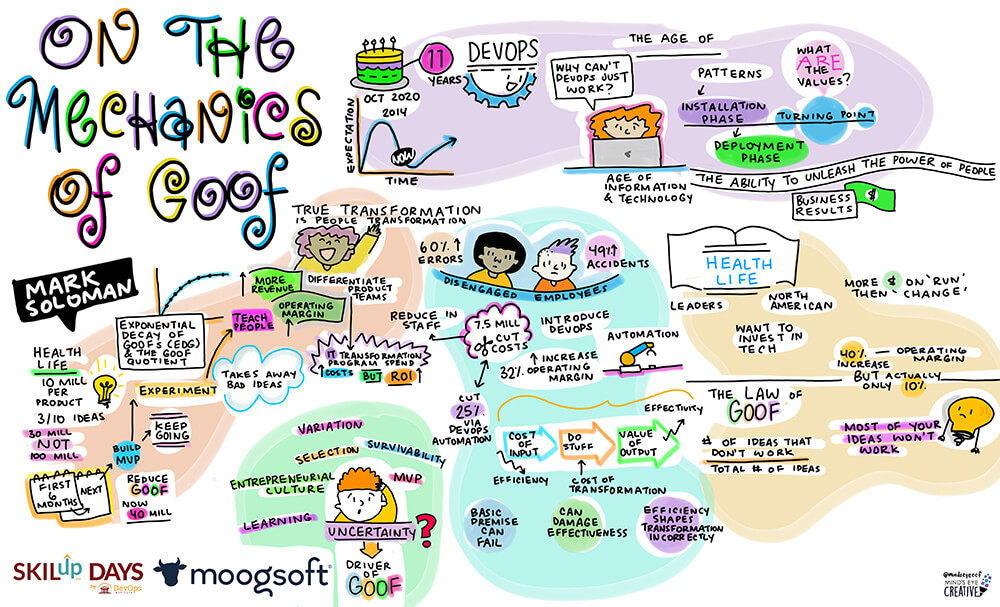 ON THE
MECHANICS
OF GOOF
MARK
SOLOMAN
OCT 2020
11
YEARS
DEVOPS
EXPECTATION
2014
NOW
TIME
WHY CAN'T
DEVOPS JUST
WORK?
AGE OF
INFORMATION
& TECHNOLOGY
THE AGE OF
PATTERNS
INSTALLATION
PHASE
DEPLOYMENT
PHASE
WHAT
ARE
THE
VALUES?
TURNING POINT
THE ABILITY TO UNLEASH THE POWER OF PEOPLE
BUSINESS
RESULTS
$
TRUE TRANSFORMATION
IS PEOPLE TRANSFORMATION
MORE
REVENUE
OPERATING
MARGIN
TEACH
PEOPLE
DIFFERENTIATE
PRODUCT
TEAMS
EXPONENTIAL
DECAY OF
GOOFS (EDG)
& THE GOOF
QUOTIENT
EXPERIMENT
TAKES AWAY
BAD IDEAS
IT TRANSFORMATION
PROGRAM SPEND
COSTS BUT ROI
HEALTH
LIFE
10 MILL
PER
PRODUCT
3/10 IDEAS
30 MILL
NOT
100 MILL
BUILD
MVP
KEEP
GOING
FIRST
6
MONTHS
NEXT
REDUCE
GOOF
NOW
40 MILL
60%
ERRORS
49%
ACCIDENTS
DISENGAGED EMPLOYEES
REDUCE IN
STAFF
7.5 MILL
OF CUT
COSTS
INTRODUCE
DEVOPS
INCREASE
32% OPERATING
MARGIN
AUTOMATION
CUT
25%
VIA
DEVOPS
AUTOMATION
COST OF
INPUT
DO
STUFF
VALUE OF
OUTPUT
EFFECTIVITY
EFFICIENCY
COST OF
TRANSFORMATION
BASIC
PREMISE
CAN
FAIL
CAN
DAMAGE
EFFECTIVENESS
EFFICIENCY
SHAPES
TRANSFORMATION
INCORRECTLY
HEALTH
LIFE
LEADERS
NORTH
AMERICAN
WANT TO
INVEST IN
TECH
MORE $ ON 'RUN'
THEN 'CHANGE'
40% - OPERATING
INCREASE MARGIN
BUT ACTUALLY
ONLY 10%
THE LAW OF
GOOF
# OF IDEAS THAT
DON'T WORK
TOTAL # OF IDEAS
MOST OF YOUR
IDEAS WON'T
WORK
VARIATION
SELECTION
SURVIVABILITY
ENTREPRENEURIAL
CULTURE
MVP
LEARNING
UNCERTAINTY ?
DRIVER
OF
GOOF
SKILup DAYS
by DevOps
INSTITUTE
moogsoft
@mindseyeccf
MIND'S EYE
CREATIVE